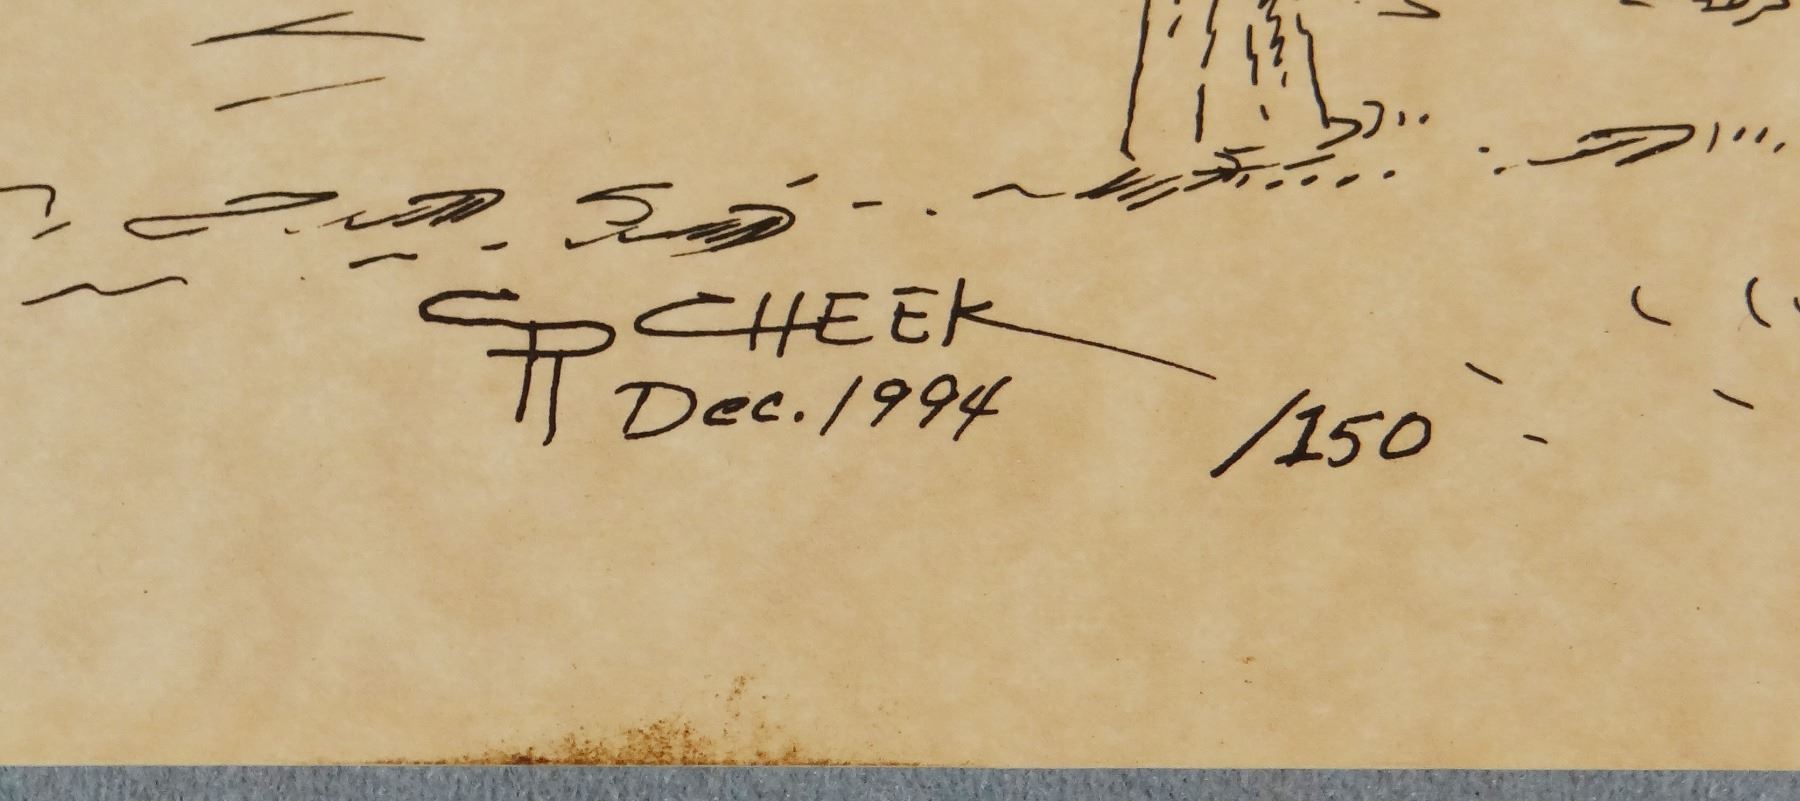 CHEEK
Dec. 1994
/150